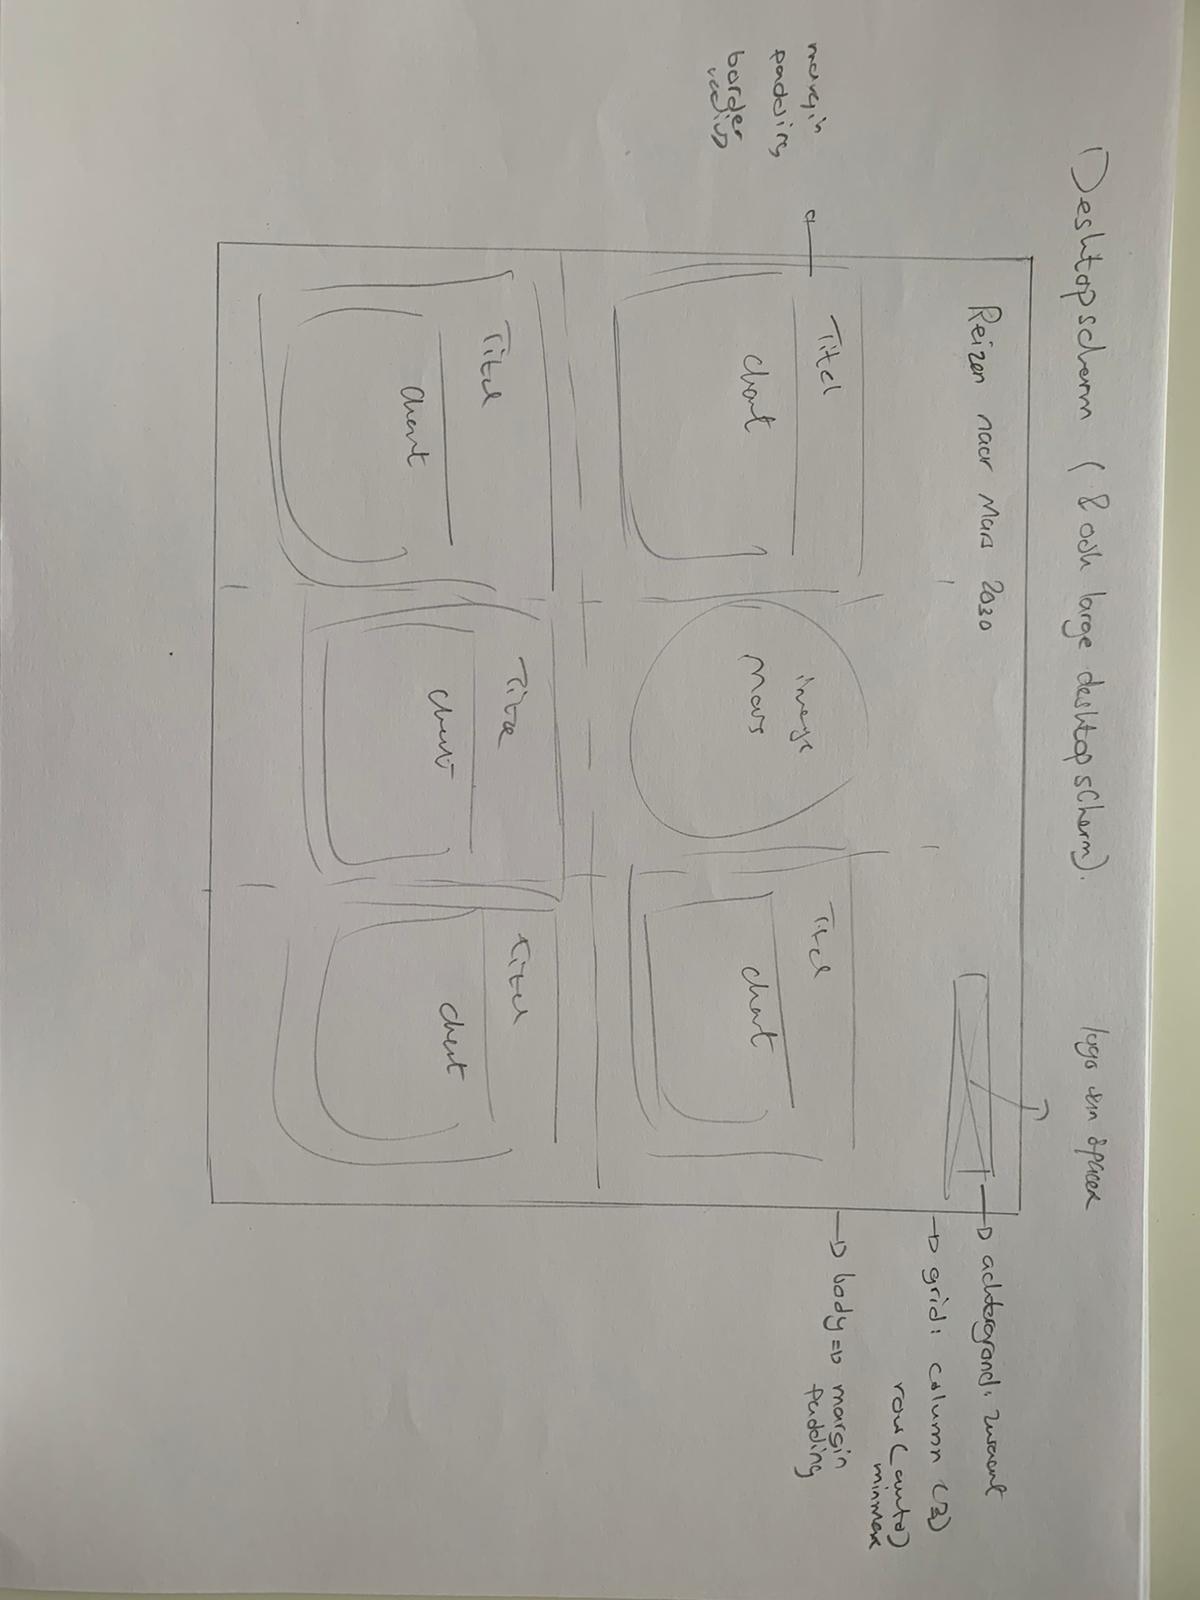 Desktopscherm ( & ook large desktop scherm).
logo van spacex
Reizen naar Mars 2030
achtergrond: zwaart
grid: column (3)
row (auto)
minmax
body => margin
padding
margin
padding
border
radius
Titel
chart
image
Mars
Titel
chart
Titel
Chart
Titel
chart
titel
chart